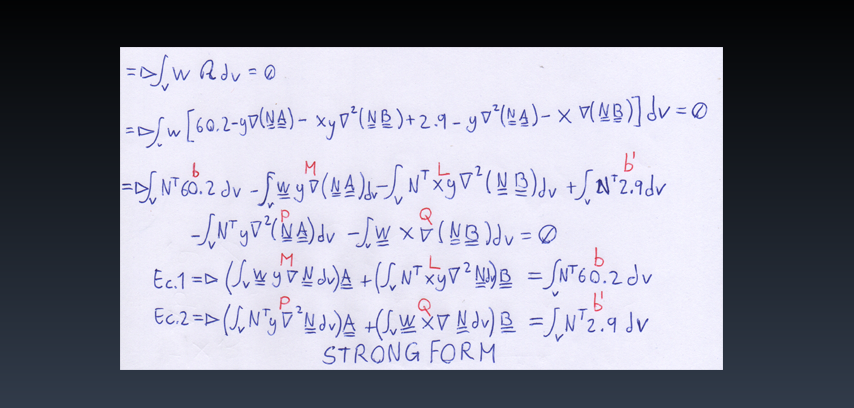 =▷∫ᵥ W R dv = ∅
=▷∫ᵥ W [60.2-y∇(N̳A̳) - xy∇²(N̳B̳) + 2.9 - y∇²(N̳A̳) - x ∇(N̳B̳)] dv = ∅
b M L b'
=▷∫ᵥ Nᵀ60.2 dv - ∫ᵥ W̳ y ∇(N̳A̳)dv - ∫ᵥ Nᵀ xy∇²(N̳ B̳)dv + ∫ᵥ Nᵀ2.9dv
P Q
-∫ᵥ Nᵀy∇²(N̳A̳)dv - ∫ᵥ W̳ x ∇(N̳B̳)dv = ∅
M L b
Ec.1 =▷ (∫ᵥ W̳ y ∇ N̳ dv)A̳ + (∫ᵥ Nᵀ xy∇² N̳dv)B̳ = ∫ᵥ Nᵀ60.2 dv
P Q b'
Ec.2 =▷ (∫ᵥ Nᵀy ∇²N̳dv)A̳ + (∫ᵥ W̳ x∇ N̳dv)B̳ = ∫ᵥ Nᵀ2.9 dv
STRONG FORM